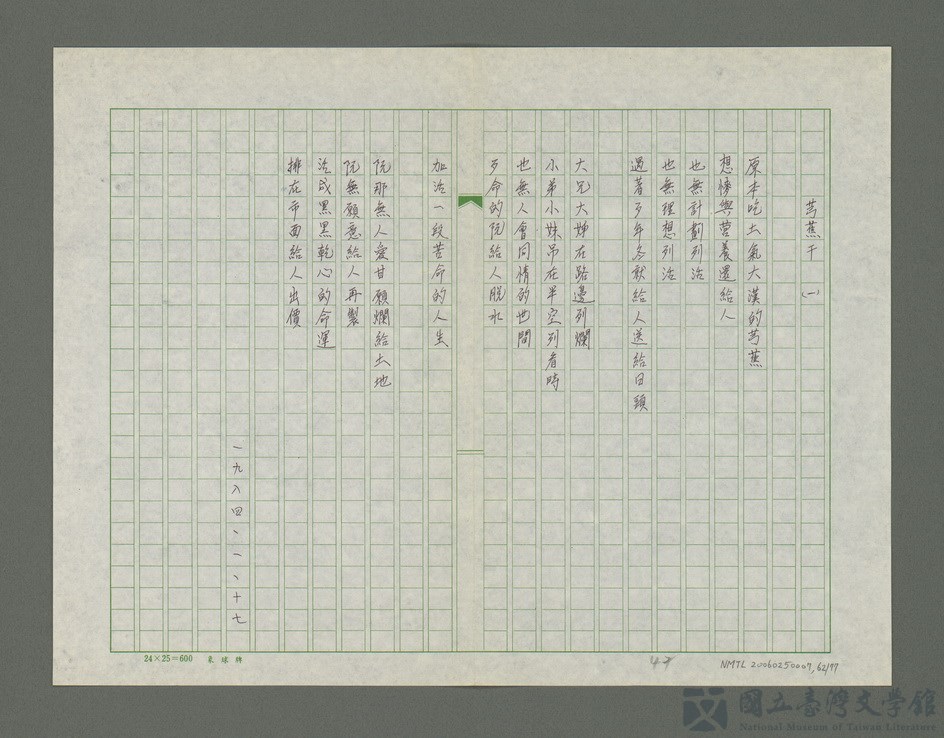 芎蕉干 (一)
原本吃土氣大漢的芎蕉
想情與營養還給人
也無計劃列治
也無理想列治
過著歹年冬就給人送給日頭
大兄大姊在路邊列爛
小弟小妹吊在半空列看時
也無人會同情的世間
歹命的阮給人脫水
加治一段苦命的人生
阮那無人愛甘願爛給土地
阮無願意給人再製
治成黑黑乾心的命運
排在市面給人出價
一九八四、一、十七
24×25=600 象球牌
47
NMTL 20060250007,62/77
國立臺灣文學館
National Museum of Taiwan Literature